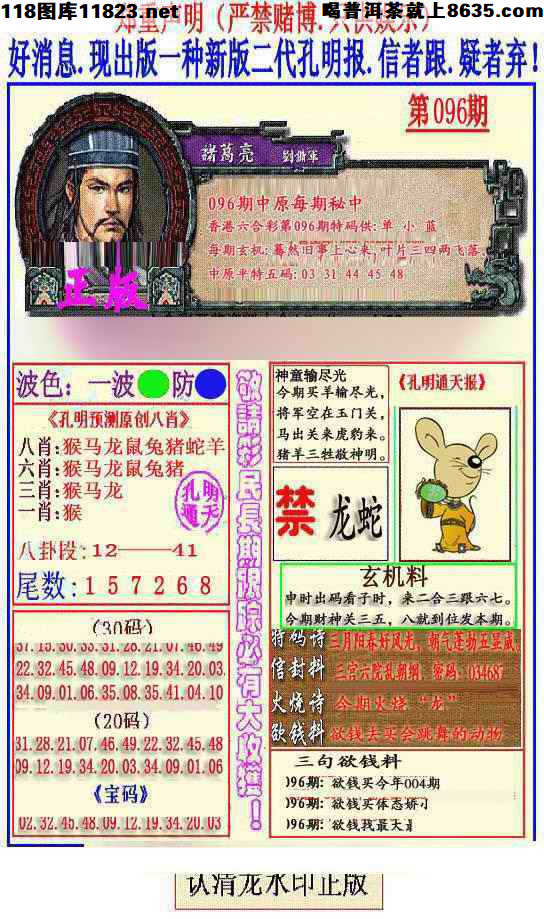 118图库11823.net
喝普洱茶就上8635.com
郑重声明（严禁赌博.只供娱乐）
好消息.现出版一种新版二代孔明报.信者跟.疑者弃！
第096期
諸葛亮
劉備軍
096期中原每期秘中
香港六合彩第096期特码供：单 小 蓝
每期玄机：蓦然旧事上心来，叶片三四两飞落
中原平特五码：03 31 44 45 48
正版
波色：一波 防
《孔明预测原创八肖》
八肖：猴马龙鼠兔猪蛇羊
六肖：猴马龙鼠兔猪
三肖：猴马龙
一肖：猴
孔明
通天
八卦段：12——41
尾数：157268
(30码)
37.15.30.33.31.28.21.07.46.49
22.32.45.48.09.12.19.34.20.03.
34.09.01.06.35.08.35.41.04.10
（20码）
31.28.21.07.46.49.22.32.45.48
09.12.19.34.20.03.34.09.01.06
《宝码》
02.32.45.48.09.12.19.34.20.03
敬請彩民長期跟踪必有大收獲！
神童输尽光
今期买羊输尽光，
将军空在玉门关，
马出关来虎豹来。
猪羊三牲敬神明。
《孔明通天报》
禁 龙蛇
玄机料
申时出码看子时，来二合三跟六七。
今期财神关三五，八就到位发本期。
特码诗 三月阳春好风光，朝气蓬勃五显威
信封料 三宫六院乱朝纲，密码：034687
火烧诗 今期火烧“龙”
欲钱料 欲钱去买会跳舞的动物
三句欲钱料
096期：欲钱买今年004期
096期：欲钱买体态娇小
096期：欲钱找最大
认清龙水印正版